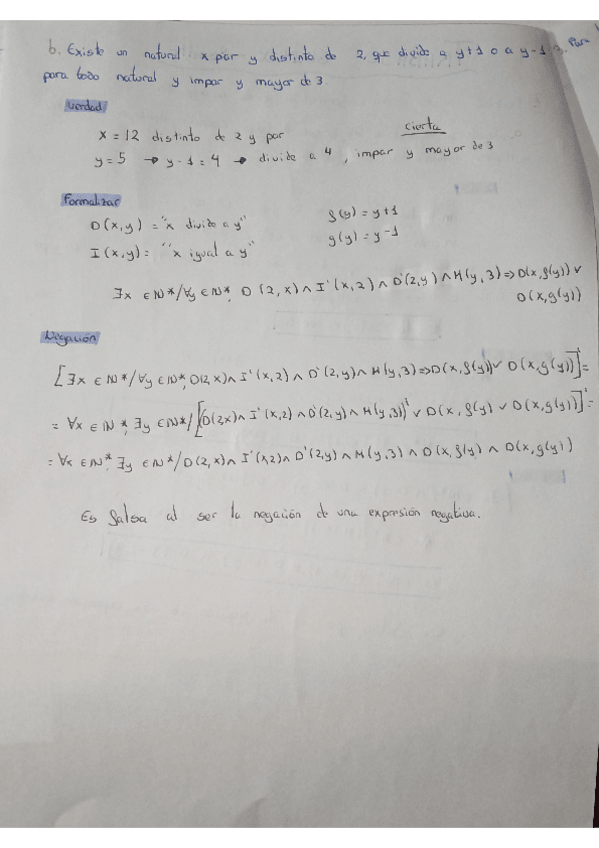 b. Existe un natural x par y distinto de 2, que divide a y+1 o a y-1, Para
para todo natural y impar y mayor de 3
Verdad
x = 12 distinto de 2 y par
cierta
y = 5 → y-1 = 4 → divide a 4, impar y mayor de 3
Formalizar
D(x,y) = "x divide a y"
f(y) = y+1
I(x,y) = "x igual a y"
g(y) = y-1
∃x ∈ N*/∀y ∈ N*, D(2,x) ∧ I'(x,2) ∧ D'(2,y) ∧ M(y,3) ⇒ D(x,f(y)) ∨
D(x,g(y))
Negación
[∃x ∈ N*/∀y ∈ N*, D(2,x) ∧ I'(x,2) ∧ D'(2,y) ∧ M(y,3) ⇒ D(x,f(y)) ∨ D(x,g(y))]' =
= ∀x ∈ N*, ∃y ∈ N*/[(D(2x) ∧ I'(x,2) ∧ D'(2,y) ∧ M(y,3))' ∨ D(x,f(y) ∨ D(x,g(y)]' =
= ∀x ∈ N*, ∃y ∈ N*/D(2,x) ∧ I'(x,2) ∧ D'(2,y) ∧ M(y,3) ∧ D(x,f(y) ∧ D(x,g(y))
Es falsa al ser la negación de una expresión negativa.